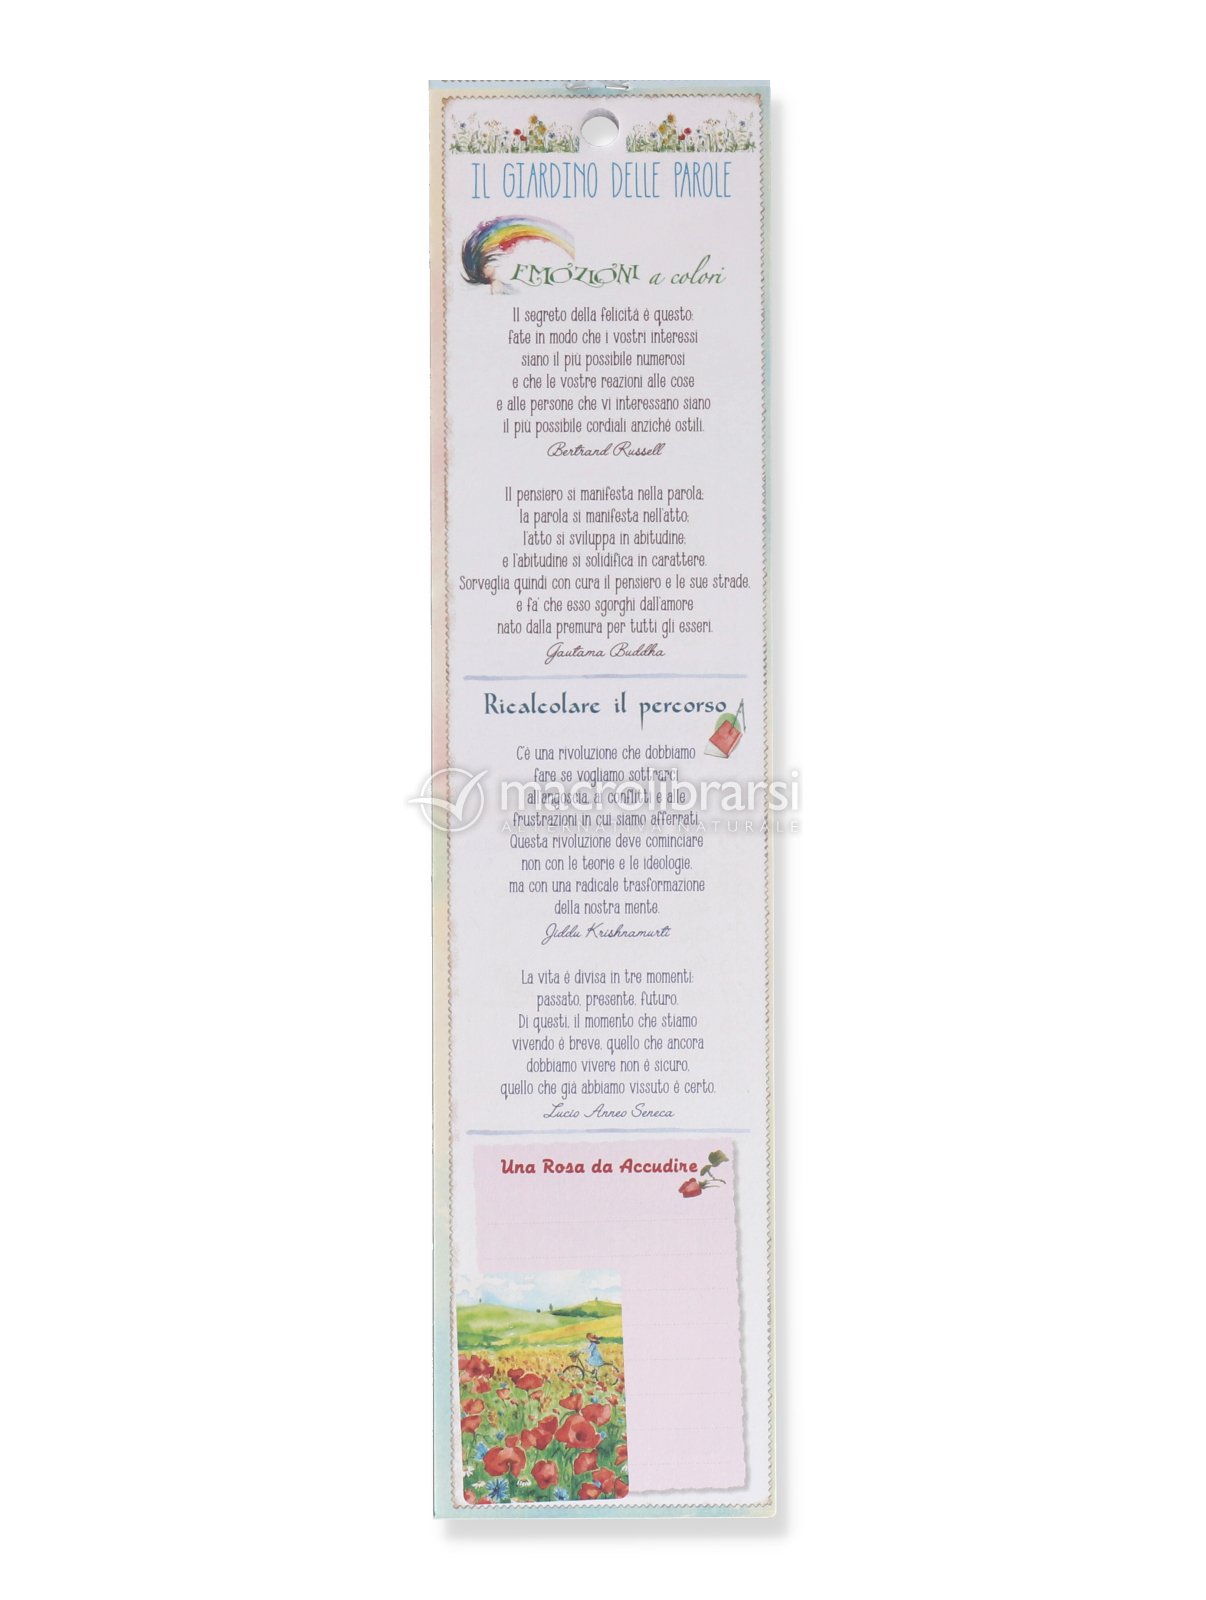 IL GIARDINO DELLE PAROLE
EMOZIONI a colori
Il segreto della felicità è questo:
fate in modo che i vostri interessi
siano il più possibile numerosi
e che le vostre reazioni alle cose
e alle persone che vi interessano siano
il più possibile cordiali anziché ostili.
Bertrand Russell
Il pensiero si manifesta nella parola;
la parola si manifesta nell'atto;
l'atto si sviluppa in abitudine;
e l'abitudine si solidifica in carattere.
Sorveglia quindi con cura il pensiero e le sue strade,
e fa' che esso sgorghi dall'amore
nato dalla premura per tutti gli esseri.
Gautama Buddha
Ricalcolare il percorso
C'è una rivoluzione che dobbiamo
fare se vogliamo sottrarci
all'angoscia, ai conflitti e alle
frustrazioni in cui siamo afferrati.
Questa rivoluzione deve cominciare
non con le teorie e le ideologie,
ma con una radicale trasformazione
della nostra mente.
Jiddu Krishnamurti
La vita è divisa in tre momenti:
passato, presente, futuro.
Di questi, il momento che stiamo
vivendo è breve, quello che ancora
dobbiamo vivere non è sicuro,
quello che già abbiamo vissuto è certo.
Lucio Anneo Seneca
Una Rosa da Accudire
macrolibrarsi
ALTERNATIVA NATURALE